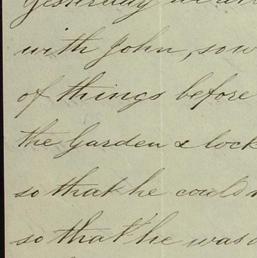 Yesterday
with John, sow
of things before
the Garden & lock
so that he could n
so that he was